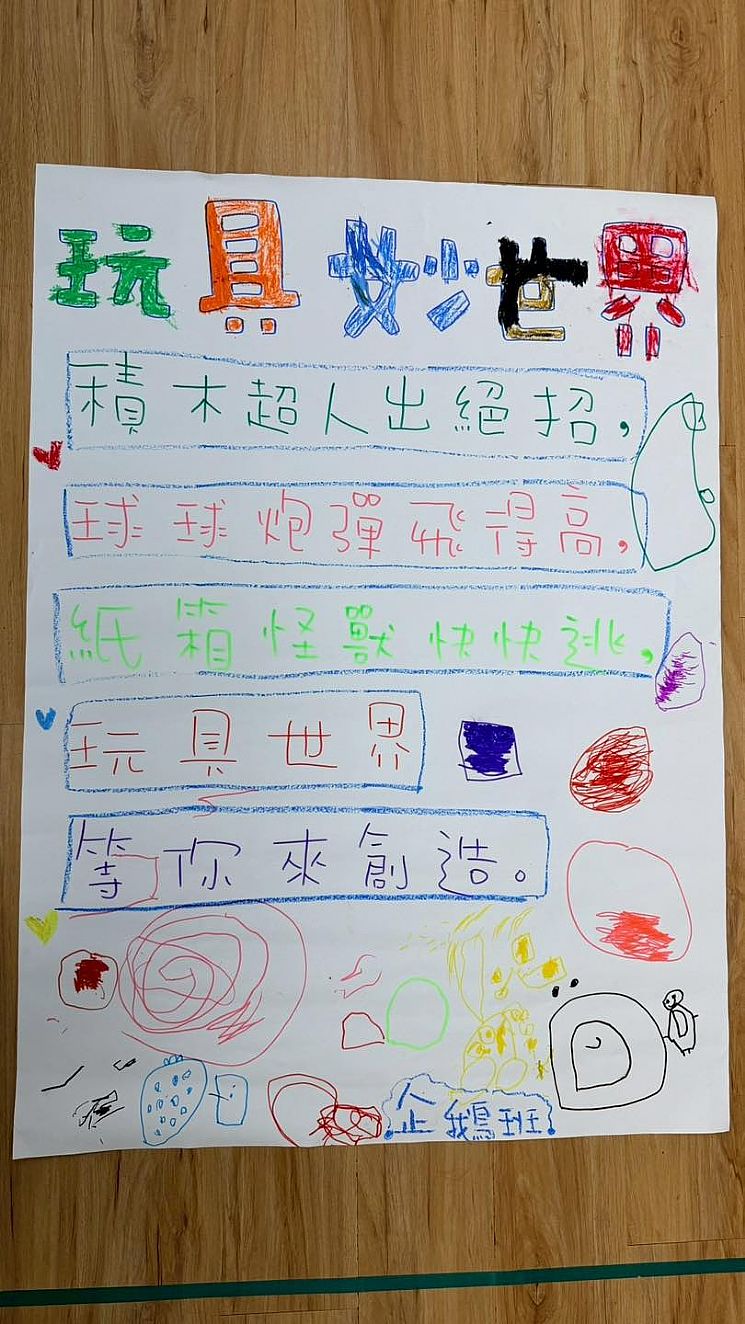 玩具妙世界
積木超人出絕招，
球球炮彈飛得高，
紙箱怪獸快快逃，
玩具世界
等你來創造。
企鵝班